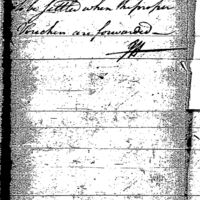 to be settled when the proper
Vouchers are forwarded —